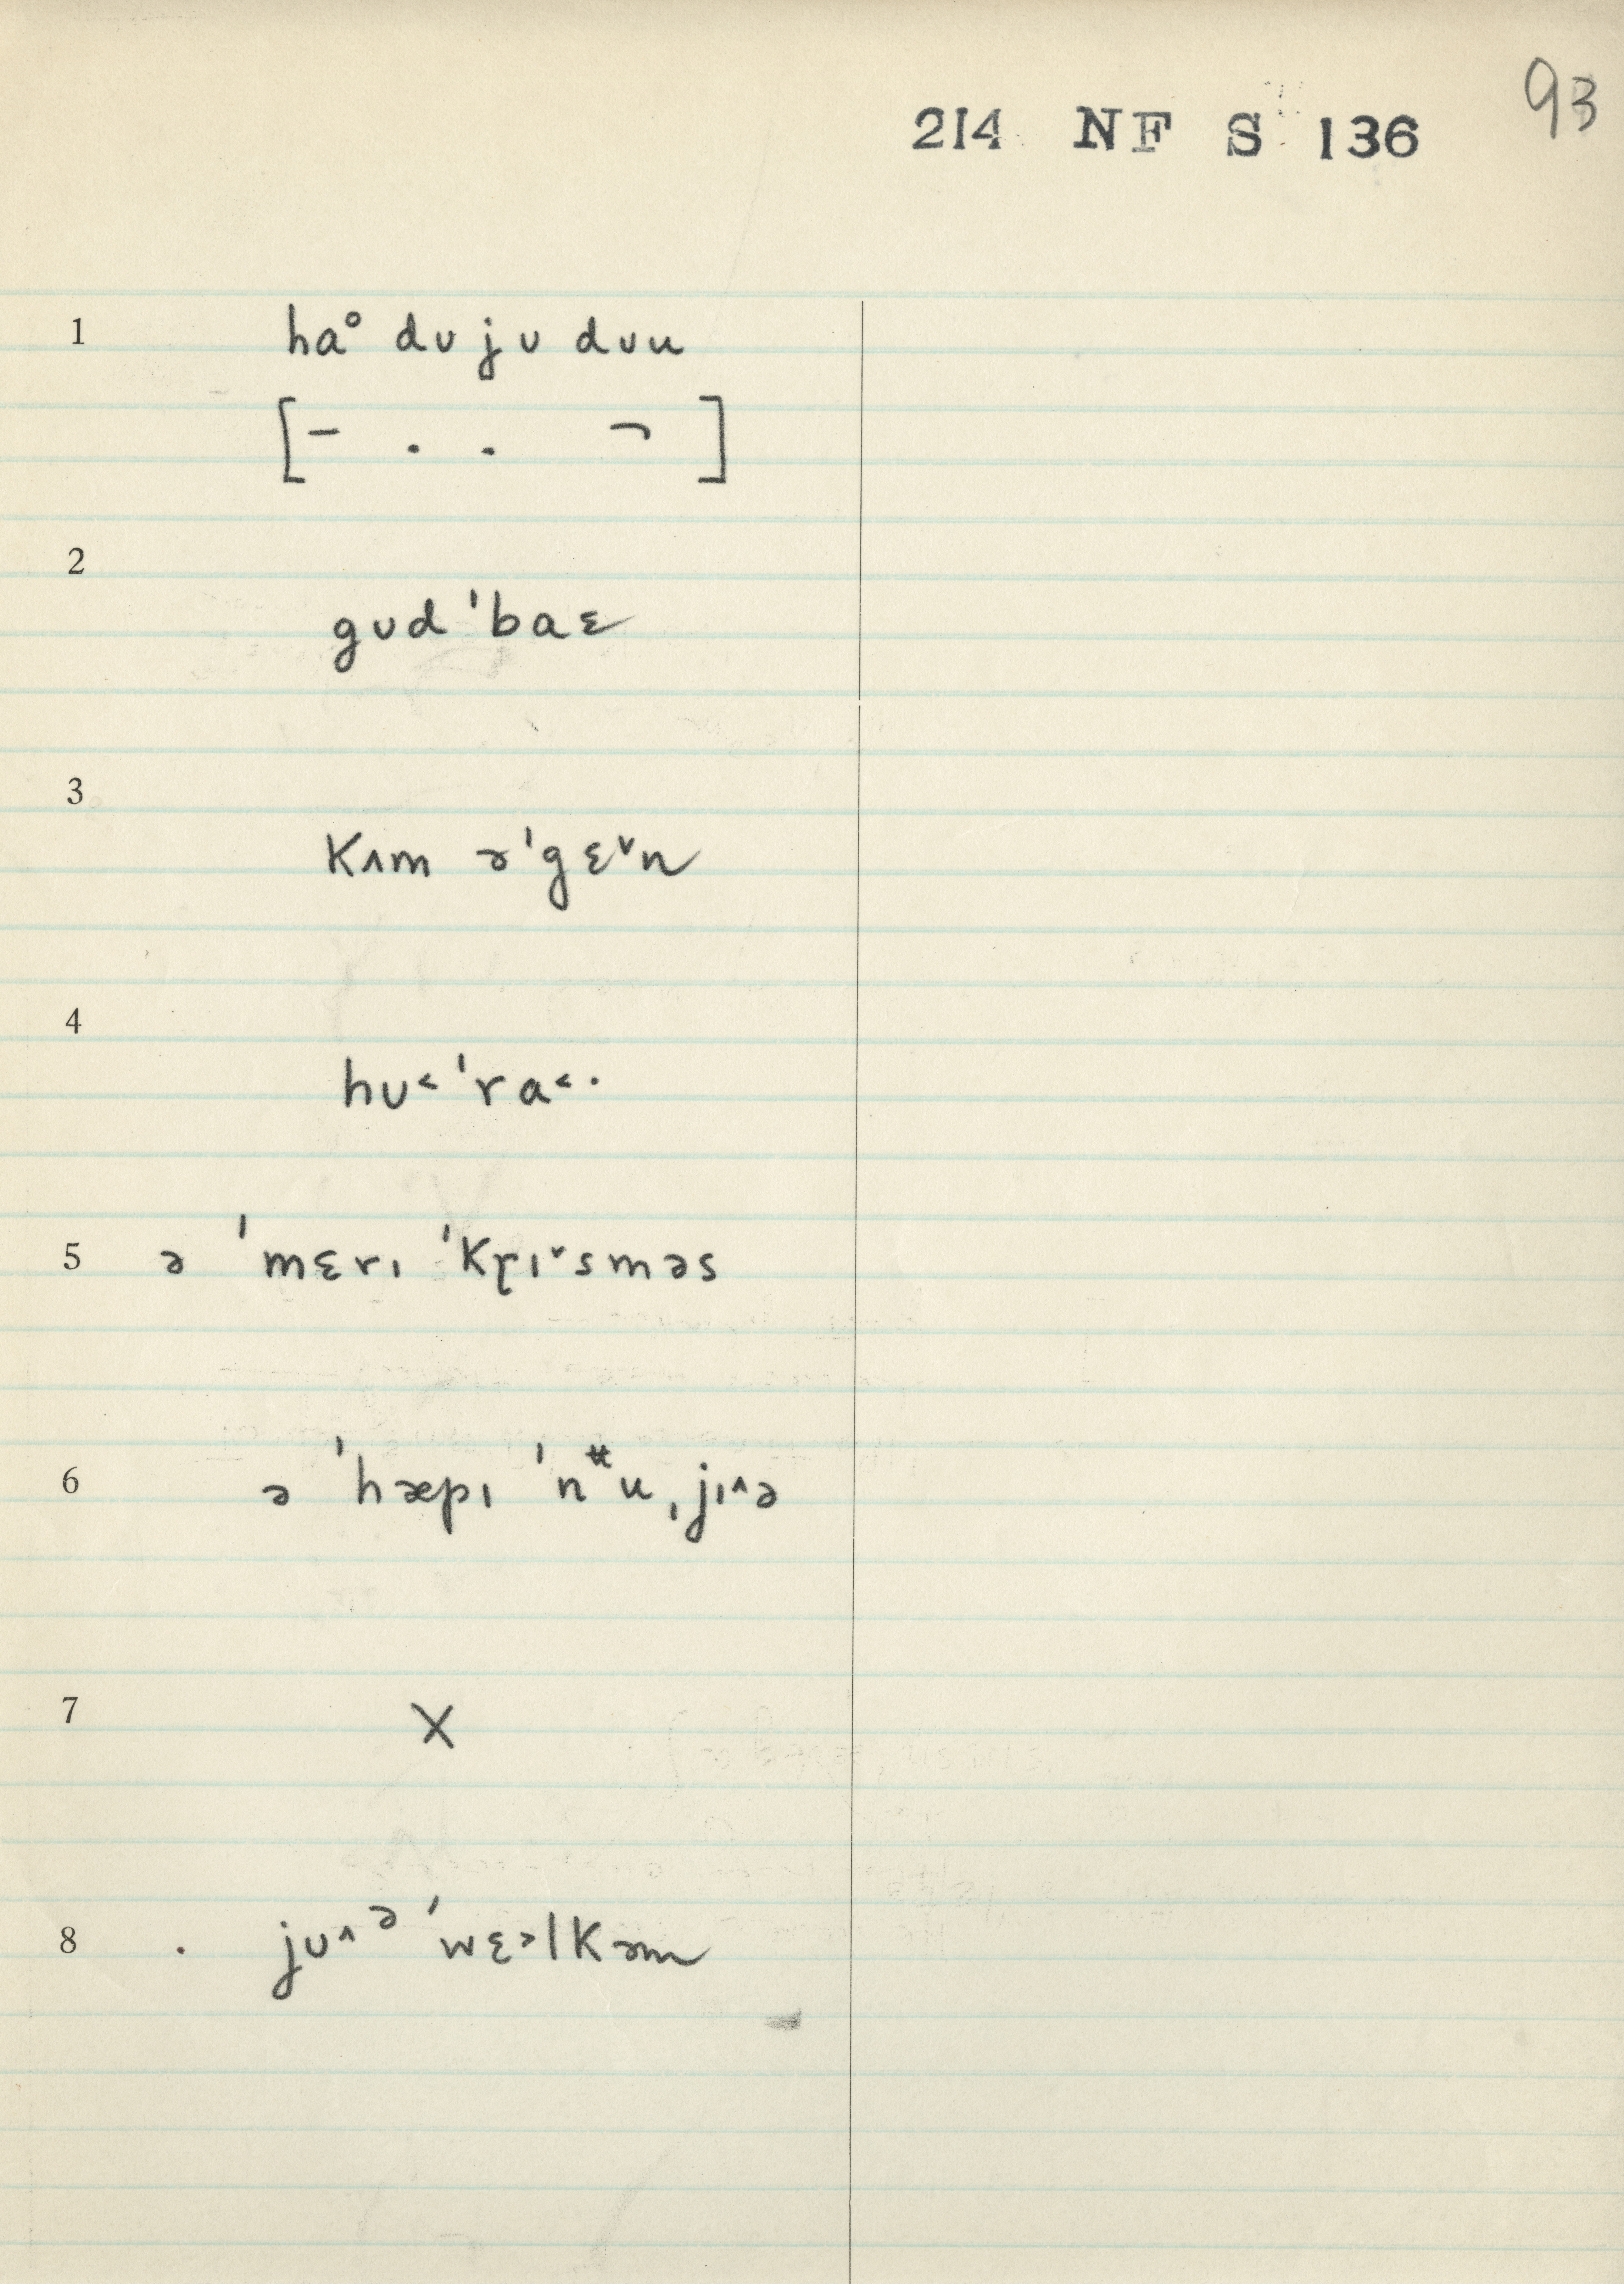 93
214 NF S 136
1 haᵒ dʊ jʊ dʊu
[– . . ¬ ]
2 gʊd ˈbaɛ
3 kʌm əˈgɛ˅n
4 hʊ˂ ˈra˂·
5 ə ˈmɛrɪ ˈkr̥ɪ˅sməs
6 ə ˈhæpɪ ˈnᵗᵗu ˌjɪ˄ə
7 X
8 . jʊ˄ᵊ ˈwɛ˃lkəm